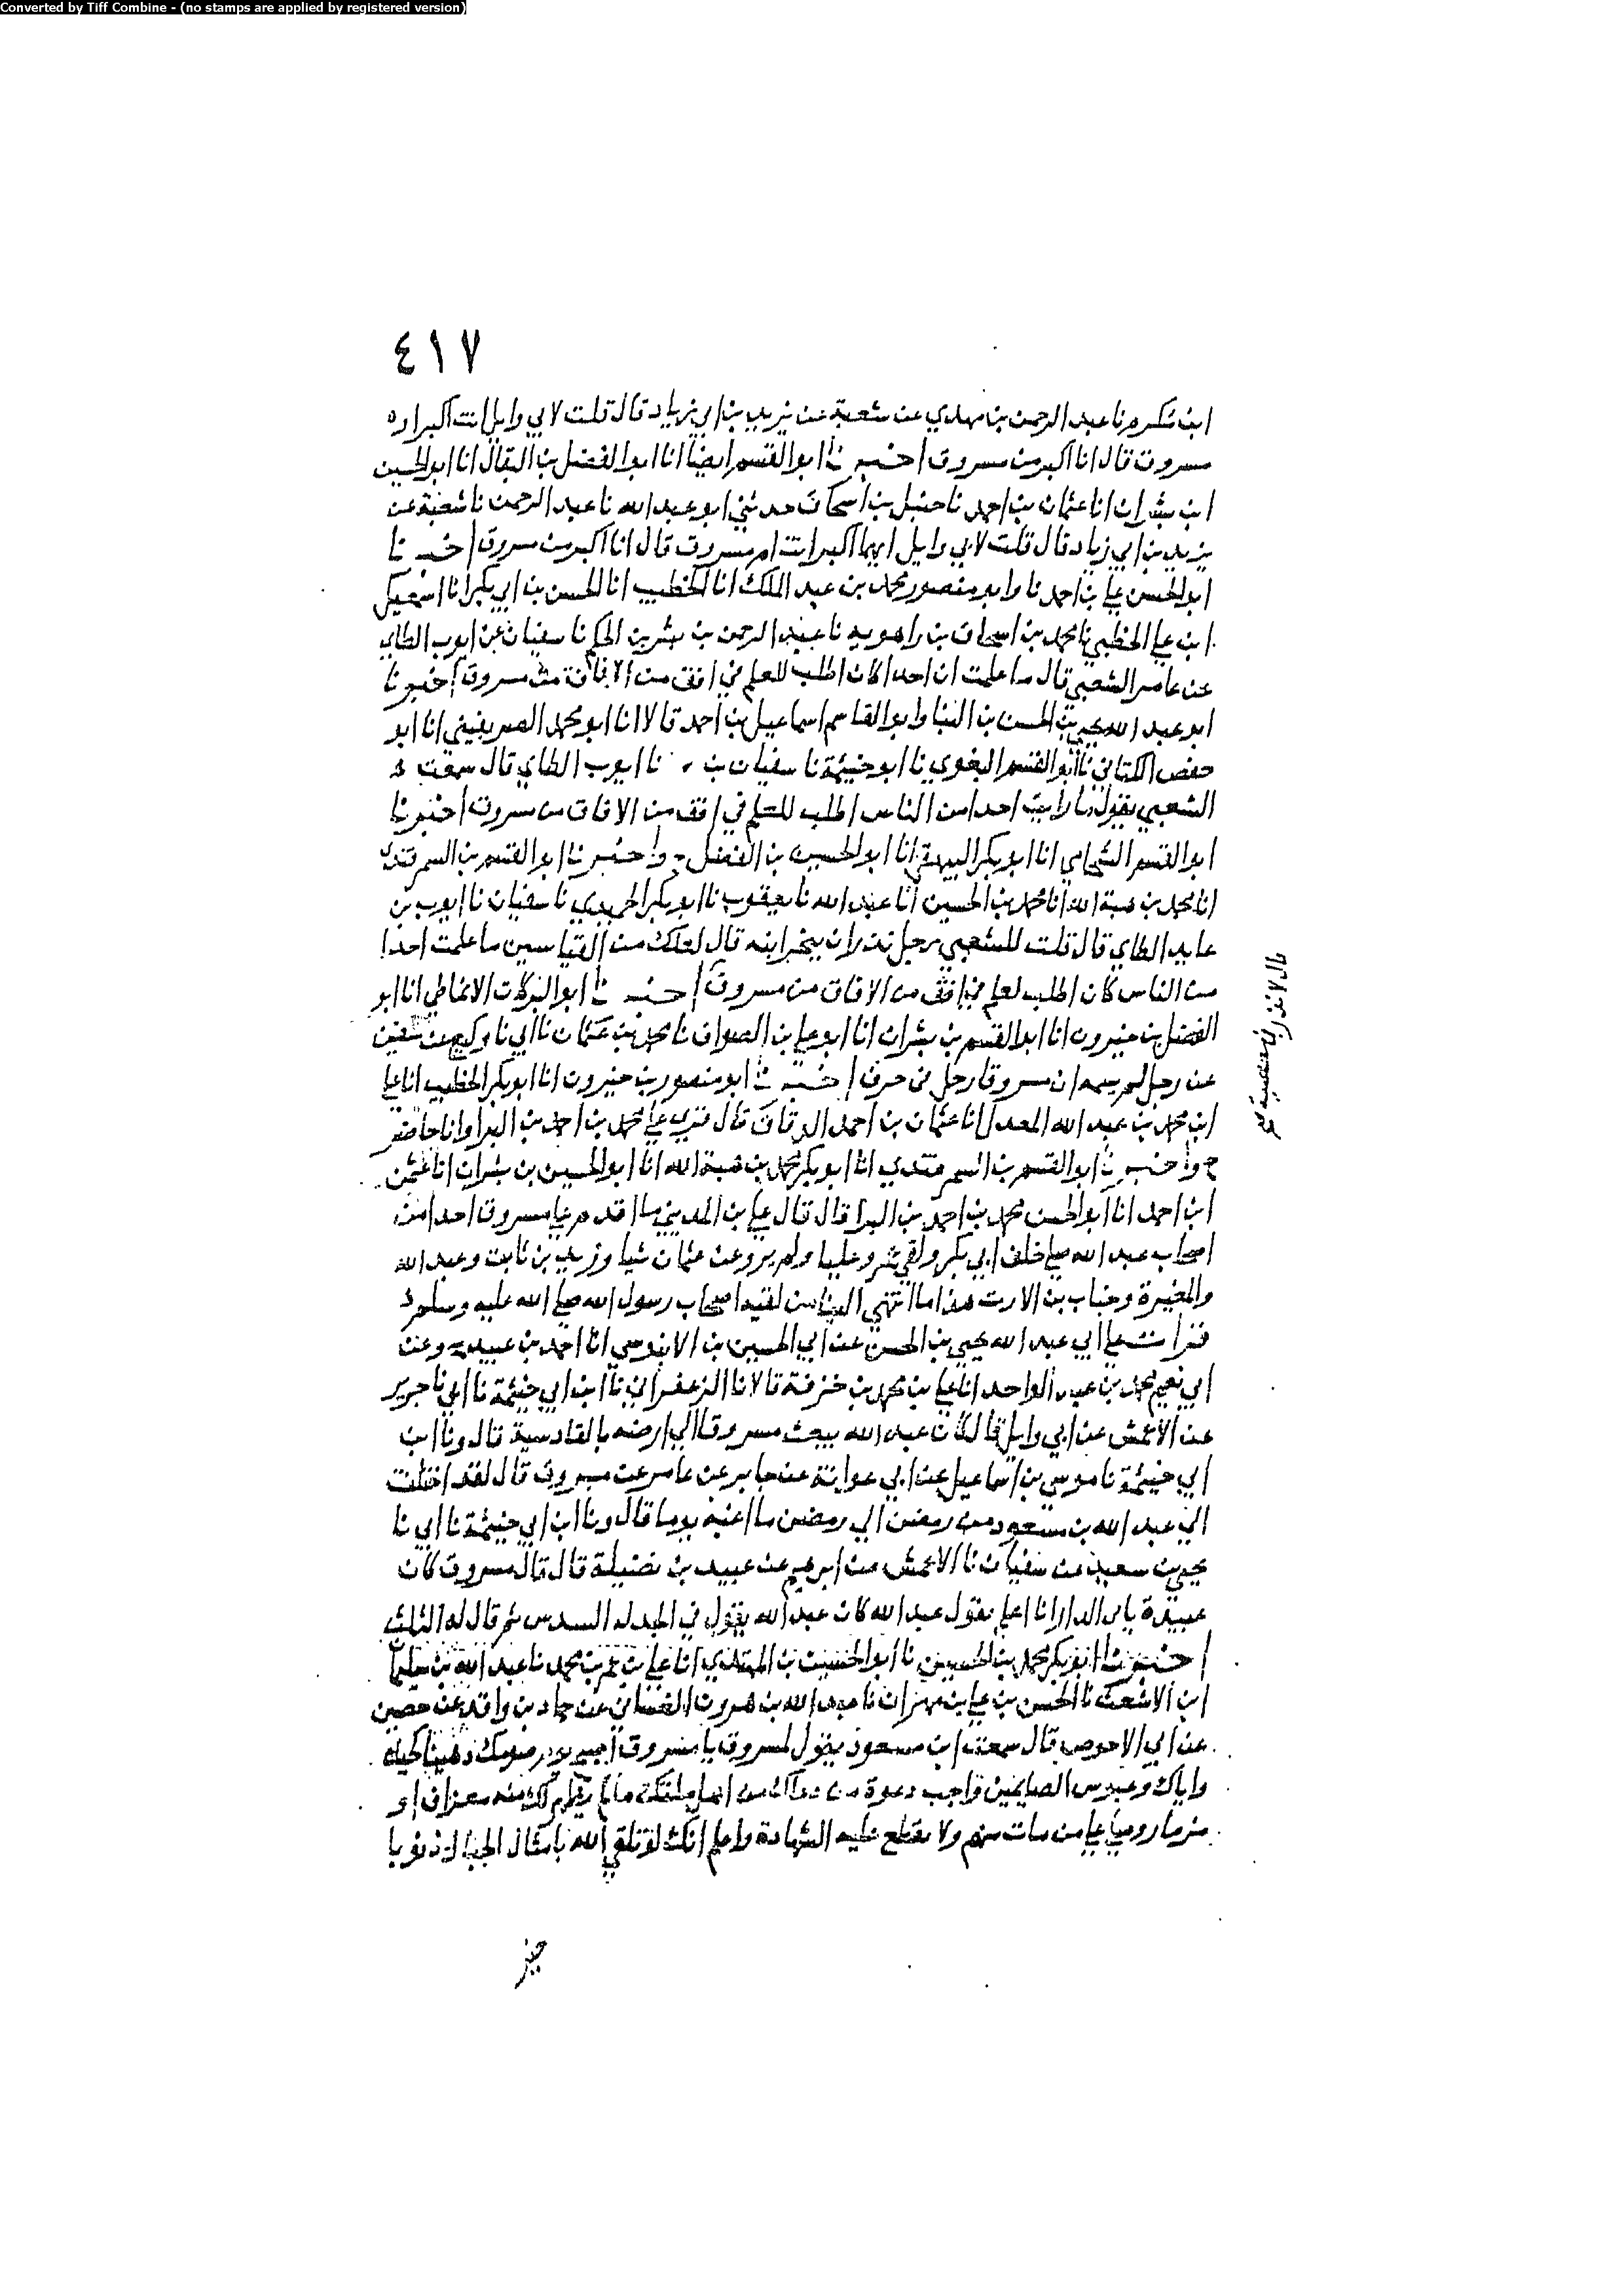 Converted by Tiff Combine - (no stamps are applied by registered version)
٤١٧
ابن شكر ونا عبد الرحمن بن مهدي عن شعبة عن يزيد بن ابي زياد قال قلت لابي وايل انت اكبر او
مسروق قال انا اكبر من مسروق اخبرنا ابو القسم ايضا انا ابو الفضل بن البقال انا ابو الحسين
ابن بشران انا عثمان بن احمد نا حنبل بن اسحاق حدثني ابو عبد الله نا عبد الرحمن نا شعبة عن
يزيد بن ابي زياد قال قلت لابي وايل ايهما اكبر انت ام مسروق قال انا اكبر من مسروق اخبرنا
ابو الحسن علي بن احمد نا وابو منصور محمد بن عبد الملك انا الخطيب انا الحسن بن ابي بكر انا اسمعيل
ابن علي الخطبي نا محمد بن اسحاق بن راهويه نا عبد الرحمن بن بشر بن الحكم نا سفيان عن ايوب الطاي
عن عامر الشعبي قال ما علمت ان احدا كان اطلب للعلم في افق من الافاق من مسروق اخبرنا
ابو عبد الله يحيى بن الحسن بن البنا وابو القاسم اسماعيل بن احمد قالا انا ابو محمد الصريفيني انا ابو
حفص الكتاني نا ابو القسم البغوي نا ابو خيثمة نا سفيان بن نا ايوب الطاي قال سمعت
الشعبي يقول ما رايت احدا من الناس اطلب للعلم في افق من الافاق من مسروق اخبرنا
ابو القسم الشحامي انا ابو بكر البيهقي انا ابو الحسين بن الفضل واخبرنا ابو القسم بن السمرقندي
انا محمد بن هبة الله انا محمد بن الحسين انا عبد الله نا يعقوب نا ابو بكر الحميدي نا سفيان نا ايوب بن
عايد الطاي قال قلت للشعبي رجل نذر ان ينحر ابنه قال لعلك من القياسين ما علمت احدا
من الناس كان اطلب لعلم في افق من الافاق من مسروق اخبرنا ابو البركات الانماطي انا ابو
الفضل بن خيرون انا ابو القسم بن بشران انا ابو علي بن الصواف نا محمد بن عثمان نا ابي نا وكيع عن سفين
عن رجل لم يسمه ان مسروقا رحل في حرف اخبرنا ابو منصور بن خيرون انا ابو بكر الخطيب انا علي
ابن محمد بن عبد الله المعدل انا عثمان بن احمد الدقاق قال قري علي محمد بن احمد بن البرا وانا حاضر
ح واخبرنا ابو القسم بن السمرقندي انا ابو بكر محمد بن هبة الله انا ابو الحسين بن بشران انا عثمن
ابن احمد انا ابو الحسن محمد بن احمد بن البرا قال قال علي بن المديني ما اقدم علي مسروق احدا من
اصحاب عبد الله صلي خلف ابي بكر ولقي عمر وعليا ولم يرو عن عثمان شيا وزيد بن ثابت وعبد الله
والمغيرة وخباب بن الارت هذا ما انتهي الينا من لقيه اصحاب رسول الله صلي الله عليه وسلم
قرات علي ابي عبد الله يحيي بن الحسن عن ابي الحسين بن الابنوسي انا احمد بن عبيد وعن
ابي نعيم محمد بن عبد الواحد انا علي بن محمد بن خزفة قالا نا الزعفراني نا ابن ابي خيثمة نا ابي نا جرير
عن الاعمش عن ابي وايل قال كان عبد الله يبعث مسروقا الي ارضه بالقادسية قال ونا ابن
ابي خيثمة نا موسي بن اسماعيل عن ابي عوانة عن جابر عن عامر عن مسروق قال لقد اختلفت
الي عبد الله بن مسعود من رمضن الي رمضن ما اغبه يوما قال ونا ابن ابي خيثمة نا ابي نا
يحيي بن سعيد عن سفيان نا الاعمش عن ابرهيم عن عبيد بن نضيلة قال قال مسروق كان
عبيدة يابي الدار انا اعلم بقول عبد الله كان عبد الله يقول في الجد له السدس ثم قال له الثلث
اخبرنا ابو بكر محمد بن الحسين نا ابو الحسين بن المهتدي انا علي بن عمر بن محمد نا عبد الله بن سليمان
ابن الاشعث نا الحسن بن علي بن مهران نا عبد الله بن هرون الغساني عن حماد بن واقد عن حصين
عن ابي الاحوص قال سمعت ابن مسعود يقول لمسروق يا مسروق اصبح يوم صومك دهينا كحيلا
واياك وعبوس الصايمين واجب دعوة من دعاك من اهل ملتك ما لم يظهر لك منه معزاف او
مزمار وصل علي من مات منهم ولا تقطع عليه الشهادة واعلم انك لو تلقي الله بامثال الجبال ذنوبا
خير